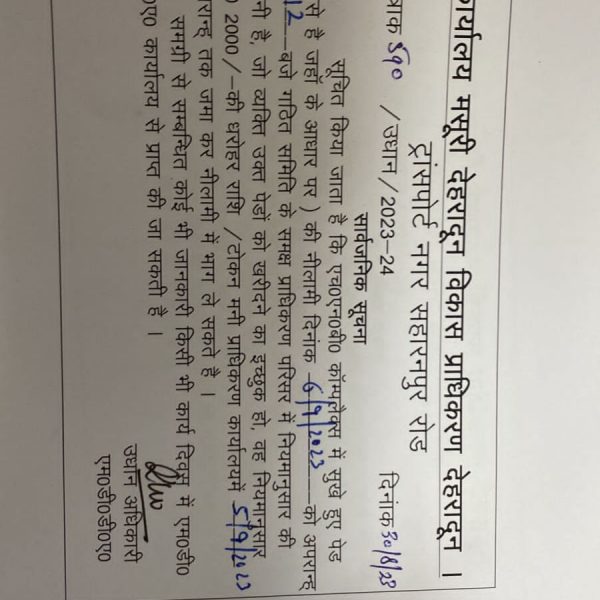 कार्यालय मसूरी देहरादून विकास प्राधिकरण देहरादून ।
ट्रांसपोर्ट नगर सहारनपुर रोड
त्रांक 590 / उद्यान / 2023–24 दिनांक 30/8/23
सार्वजनिक सूचना
सुचित किया जाता है कि एच0एन0बी0 कॉम्पलैक्स में सुखे हुए पेड
से है जहाँ के आधार पर ) की नीलामी दिनांक 6/9/2023 को अपरान्ह्
12 बजे गठित समिति के समक्ष प्राधिकरण परिसर में नियमानुसार की
नी है, जो व्यक्ति उक्त पेडों को खरीदने का इच्छुक हो, वह नियमानुसार
0 2000 /–की धरोहर राशि /टोकन मनी प्राधिकरण कार्यालयमें 5/9/2023
रान्ह् तक जमा कर नीलामी में भाग ले सकते है ।
समग्री से सम्बन्धित कोई भी जानकारी किसी भी कार्य दिवस में एम0डी0
ए0 कार्यालय से प्राप्त की जा सकती है ।
उद्यान अधिकारी
एम0डी0डी0ए0